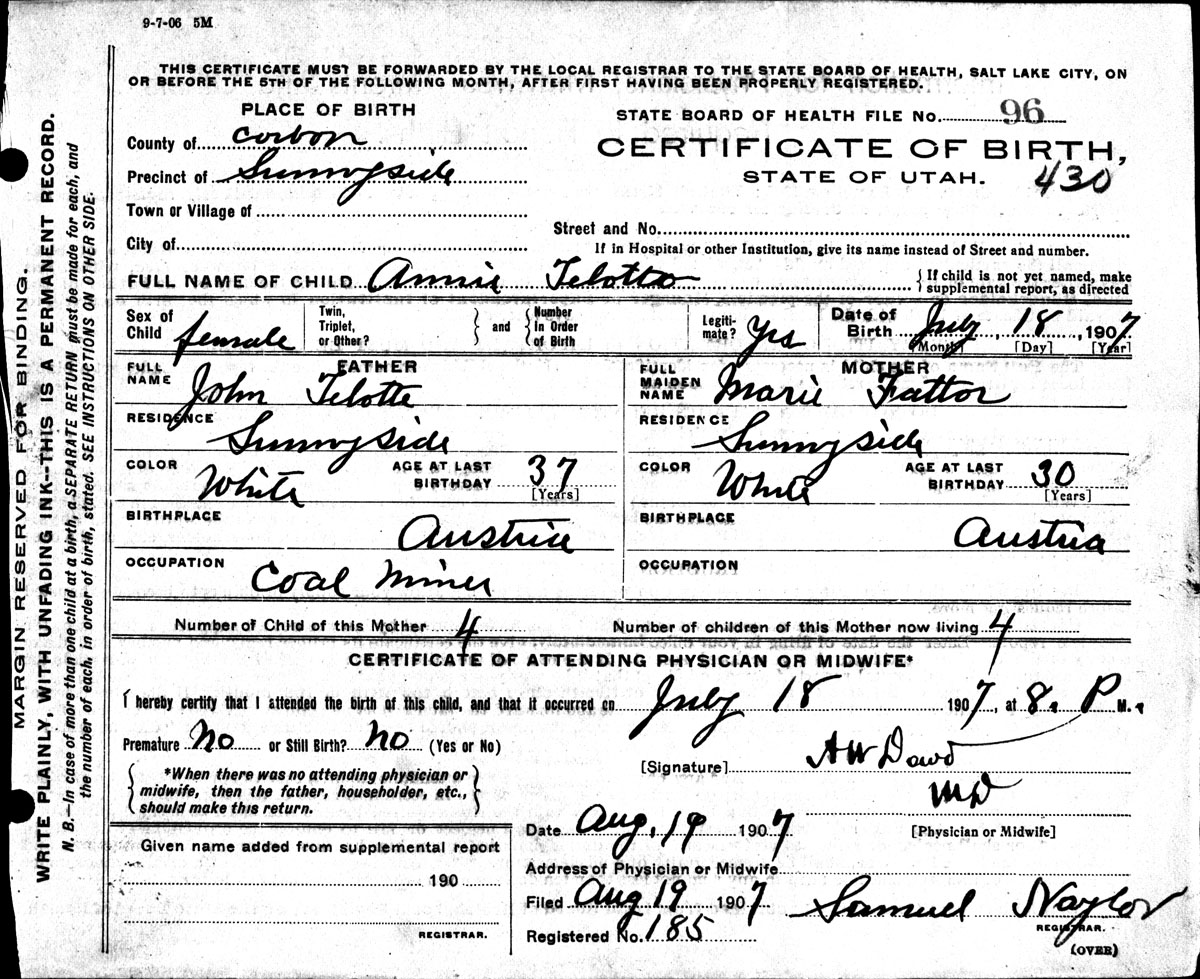 9-7-06 5M
THIS CERTIFICATE MUST BE FORWARDED BY THE LOCAL REGISTRAR TO THE STATE BOARD OF HEALTH, SALT LAKE CITY, ON
OR BEFORE THE 5TH OF THE FOLLOWING MONTH, AFTER FIRST HAVING BEEN PROPERLY REGISTERED.
PLACE OF BIRTH
STATE BOARD OF HEALTH FILE No. 96
County of Carbon
CERTIFICATE OF BIRTH,
Precinct of Sunnyside
STATE OF UTAH. 430
Town or Village of
Street and No.
City of
If in Hospital or other Institution, give its name instead of Street and number.
FULL NAME OF CHILD Annie Telotta { If child is not yet named, make supplemental report, as directed
Sex of Child female Twin, Triplet, or Other? } and { Number In Order of Birth Legiti- mate? Yes Date of Birth July 18, 1907
[Month] [Day] [Year]
FATHER
FULL NAME John Telotte
RESIDENCE Sunnyside
COLOR White AGE AT LAST BIRTHDAY 37 [Years]
BIRTHPLACE Austria
OCCUPATION Coal Miner
MOTHER
FULL MAIDEN NAME Marie Fattor
RESIDENCE Sunnyside
COLOR White AGE AT LAST BIRTHDAY 30 [Years]
BIRTHPLACE Austria
OCCUPATION
Number of Child of this Mother 4 Number of children of this Mother now living 4
CERTIFICATE OF ATTENDING PHYSICIAN OR MIDWIFE*
I hereby certify that I attended the birth of this child, and that it occurred on July 18 1907, at 8. P M.
Premature No or Still Birth? No (Yes or No)
[Signature] A W Dowd
MD
[Physician or Midwife]
{ *When there was no attending physician or
midwife, then the father, householder, etc.,
should make this return. }
Date Aug. 19 1907
Given name added from supplemental report
190
REGISTRAR.
Address of Physician or Midwife
Filed Aug 19 1907 Samuel Naylor
REGISTRAR.
Registered No. 185
(OVER)
MARGIN RESERVED FOR BINDING.
WRITE PLAINLY, WITH UNFADING INK—THIS IS A PERMANENT RECORD.
N. B.—In case of more than one child at a birth, a SEPARATE RETURN must be made for each, and
the number of each, in order of birth, stated. SEE INSTRUCTIONS ON OTHER SIDE.